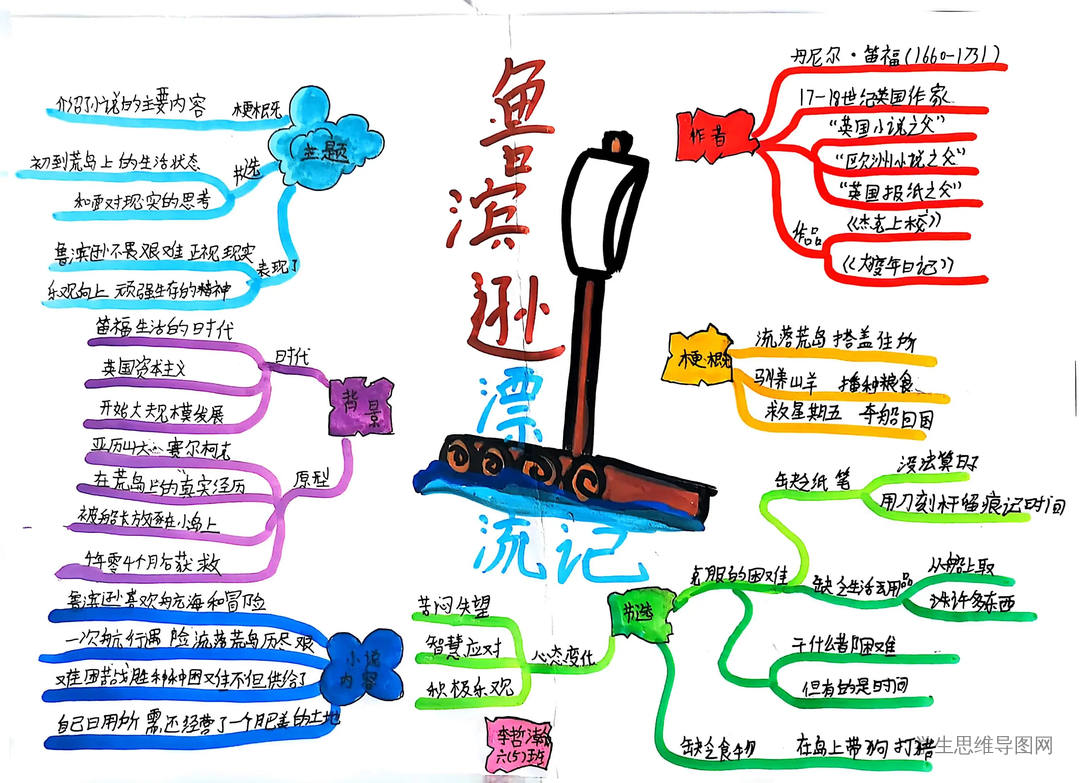 鲁滨逊漂流记
主题
梗概
介绍了小说的主要内容
节选
初到荒岛上的生活状态
和面对现实的思考
表现了
鲁滨逊不畏艰难 正视现实
乐观向上 顽强生存的精神
背景
时代
笛福生活的时代
英国资本主义
开始大规模发展
原型
亚历山大 赛尔柯克
在荒岛上的真实经历
被船长放逐在小岛上
年零4个月后获救
小说内容
鲁滨逊喜欢航海和冒险
一次航行遇险 流落荒岛历尽艰
难困苦战胜种种困难不但供给了
自己日用所需,还经营了一个肥美的土地
作者
丹尼尔·笛福(1660-1731)
17-18世纪英国作家
“英国小说之父”
“欧洲小说之父”
“英国报纸之父”
作品
《杰克上校》
《大疫年日记》
梗概
流落荒岛 搭盖住所
驯养山羊 播种粮食
救星期五 夺船回国
节选
克服的困难
缺乏纸笔
没法算日子
用刀刻杆留痕记时间
缺乏生活用品
从船上取
许多东西
干什么都困难
但有的是时间
缺乏食物 在岛上带狗打猎
心态变化
苦闷失望
智慧应对
积极乐观
李哲瀚
六(5)班
学生思维导图网